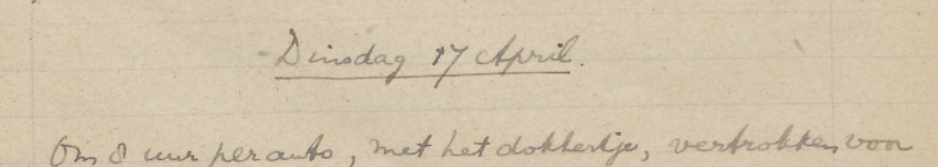 - Dinsdag 17 April.
Om 8 uur per auto, met het doktertje, vertrokken voor